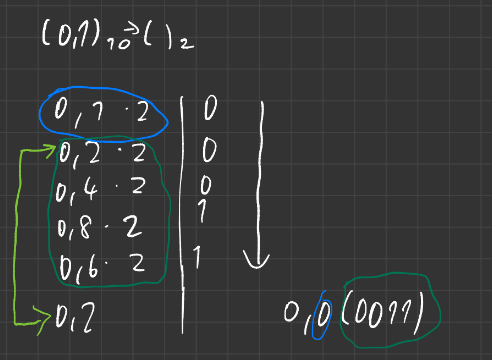 (0,1)10 → ( )2
0,1 · 2 | 0
0,2 · 2 | 0
0,4 · 2 | 0
0,8 · 2 | 1
0,6 · 2 | 1
0,2 |
0,0(0011)